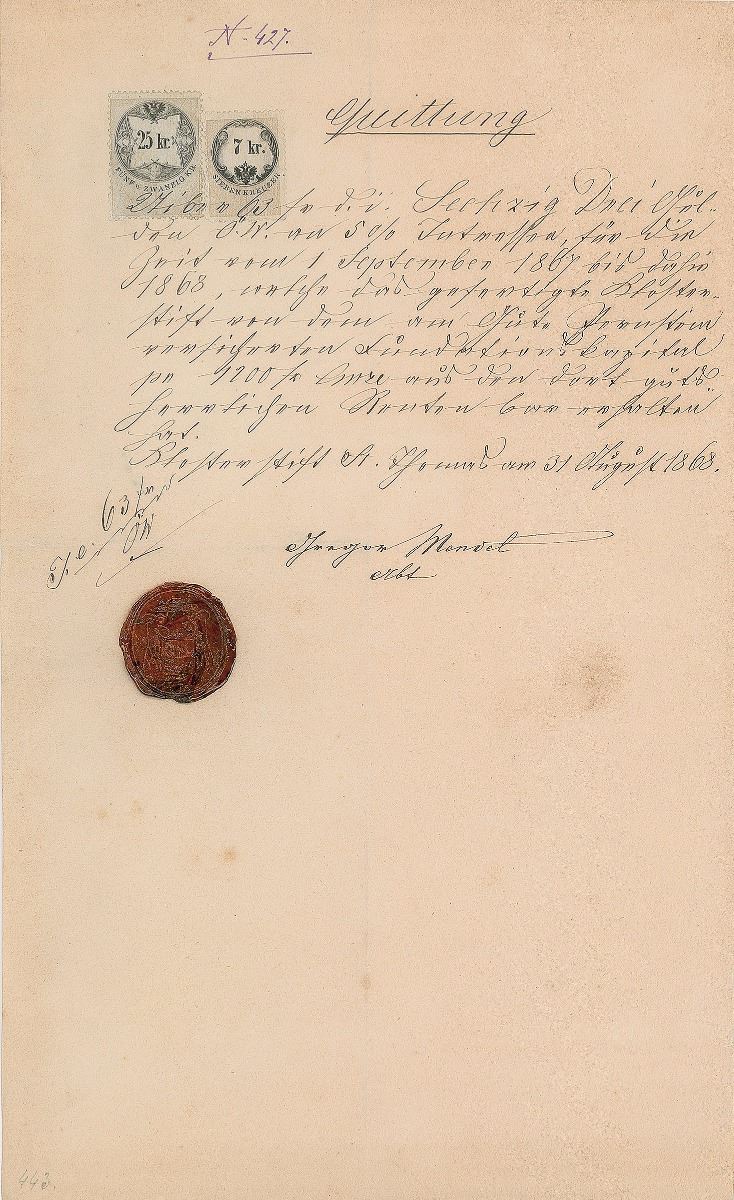 N. 427.
25 kr.
FÜNF U. ZWANZIG KR.
7 kr.
SIEBEN KREUZER
Quittung
Über 63 fr d. i. Sechzig Drei Gül-
den Ö.W. an 5 0/0 Intressen, für die
Zeit vom 1 September 1867 bis dahin
1868, welche das gefertigte Kloster-
stift von dem am Gute Pernstein
versicherten Fundationskapital
pr 1200 fr aus den dort guts-
herrlichen Renten bar erhalten
hat.
Klosterstift St. Thomas am 31 August 1868.
63 fr
ÖW
Gregor Mendel
Abt
443.